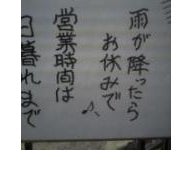 雨が降ったら
お休みで
営業時間は
日暮れまで